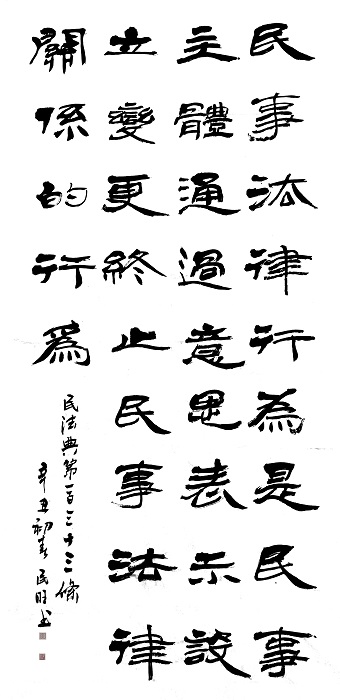 民事法律行為是民事
主體通過意思表示設
立變更終止民事法律
關係的行為
民法典第一百三十三條
辛丑初春民旺书